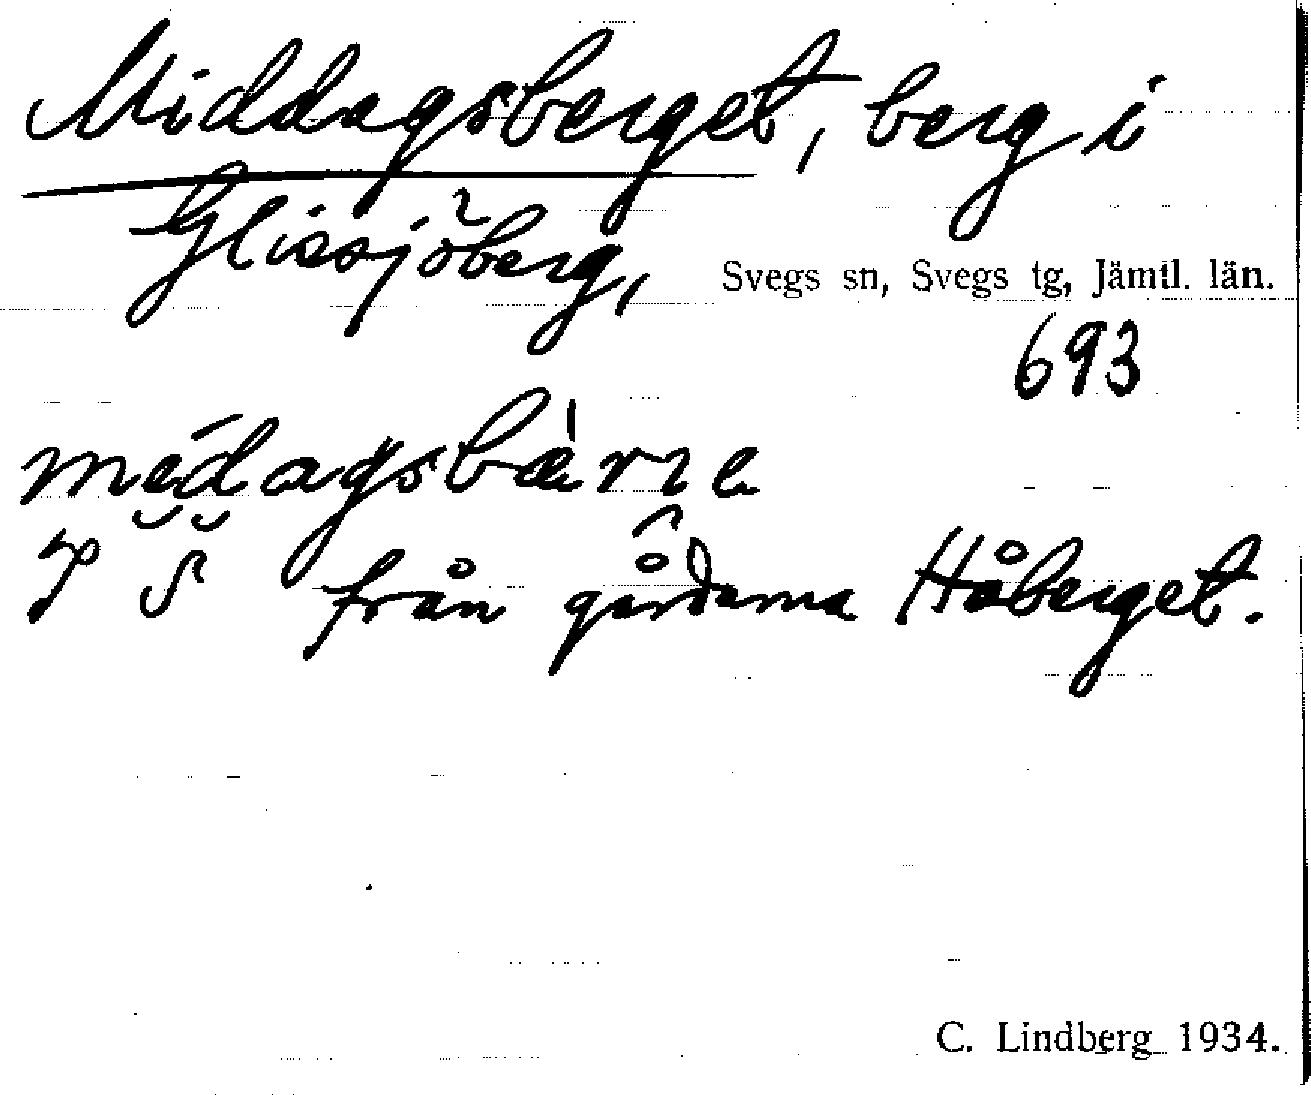 Middagsberget, berg i
Glissjöberg,
Svegs sn, Svegs tg, Jämtl. län.
693
från gårdarna Håberget.
C. Lindberg 1934.